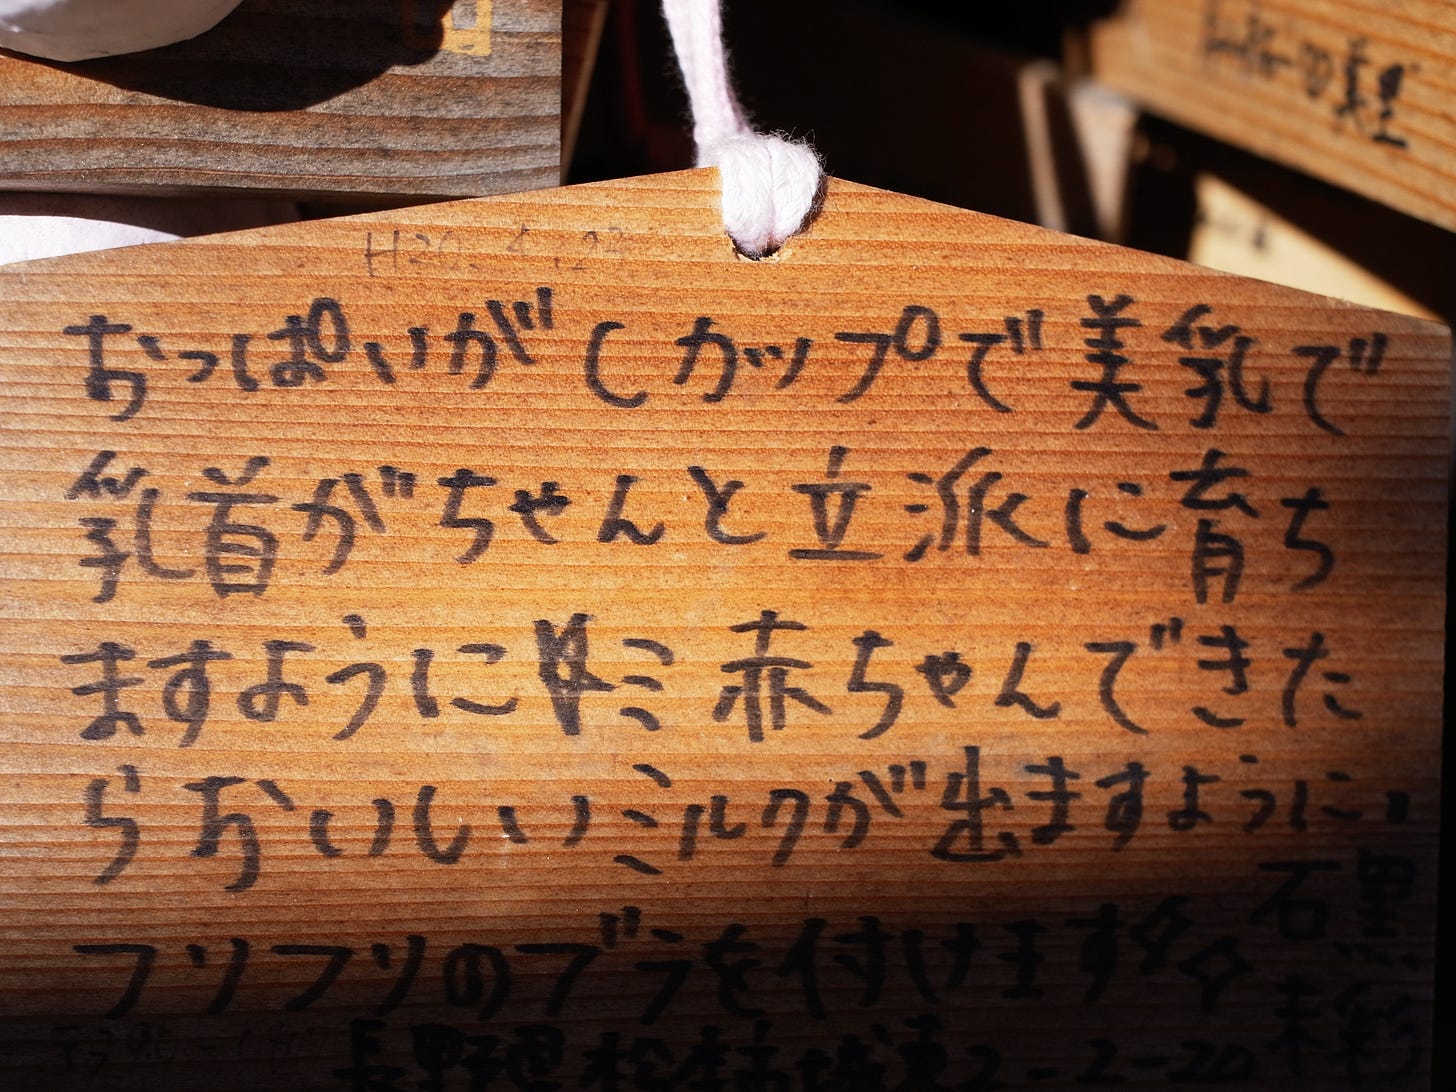 おっぱいがCカップで美乳で
乳首がちゃんと立派に育ち
ますように 赤ちゃんできた
らおいしいミルクが出ますように。
フリフリのブラを付けます
石黒
長野県松本市城東2-2-20